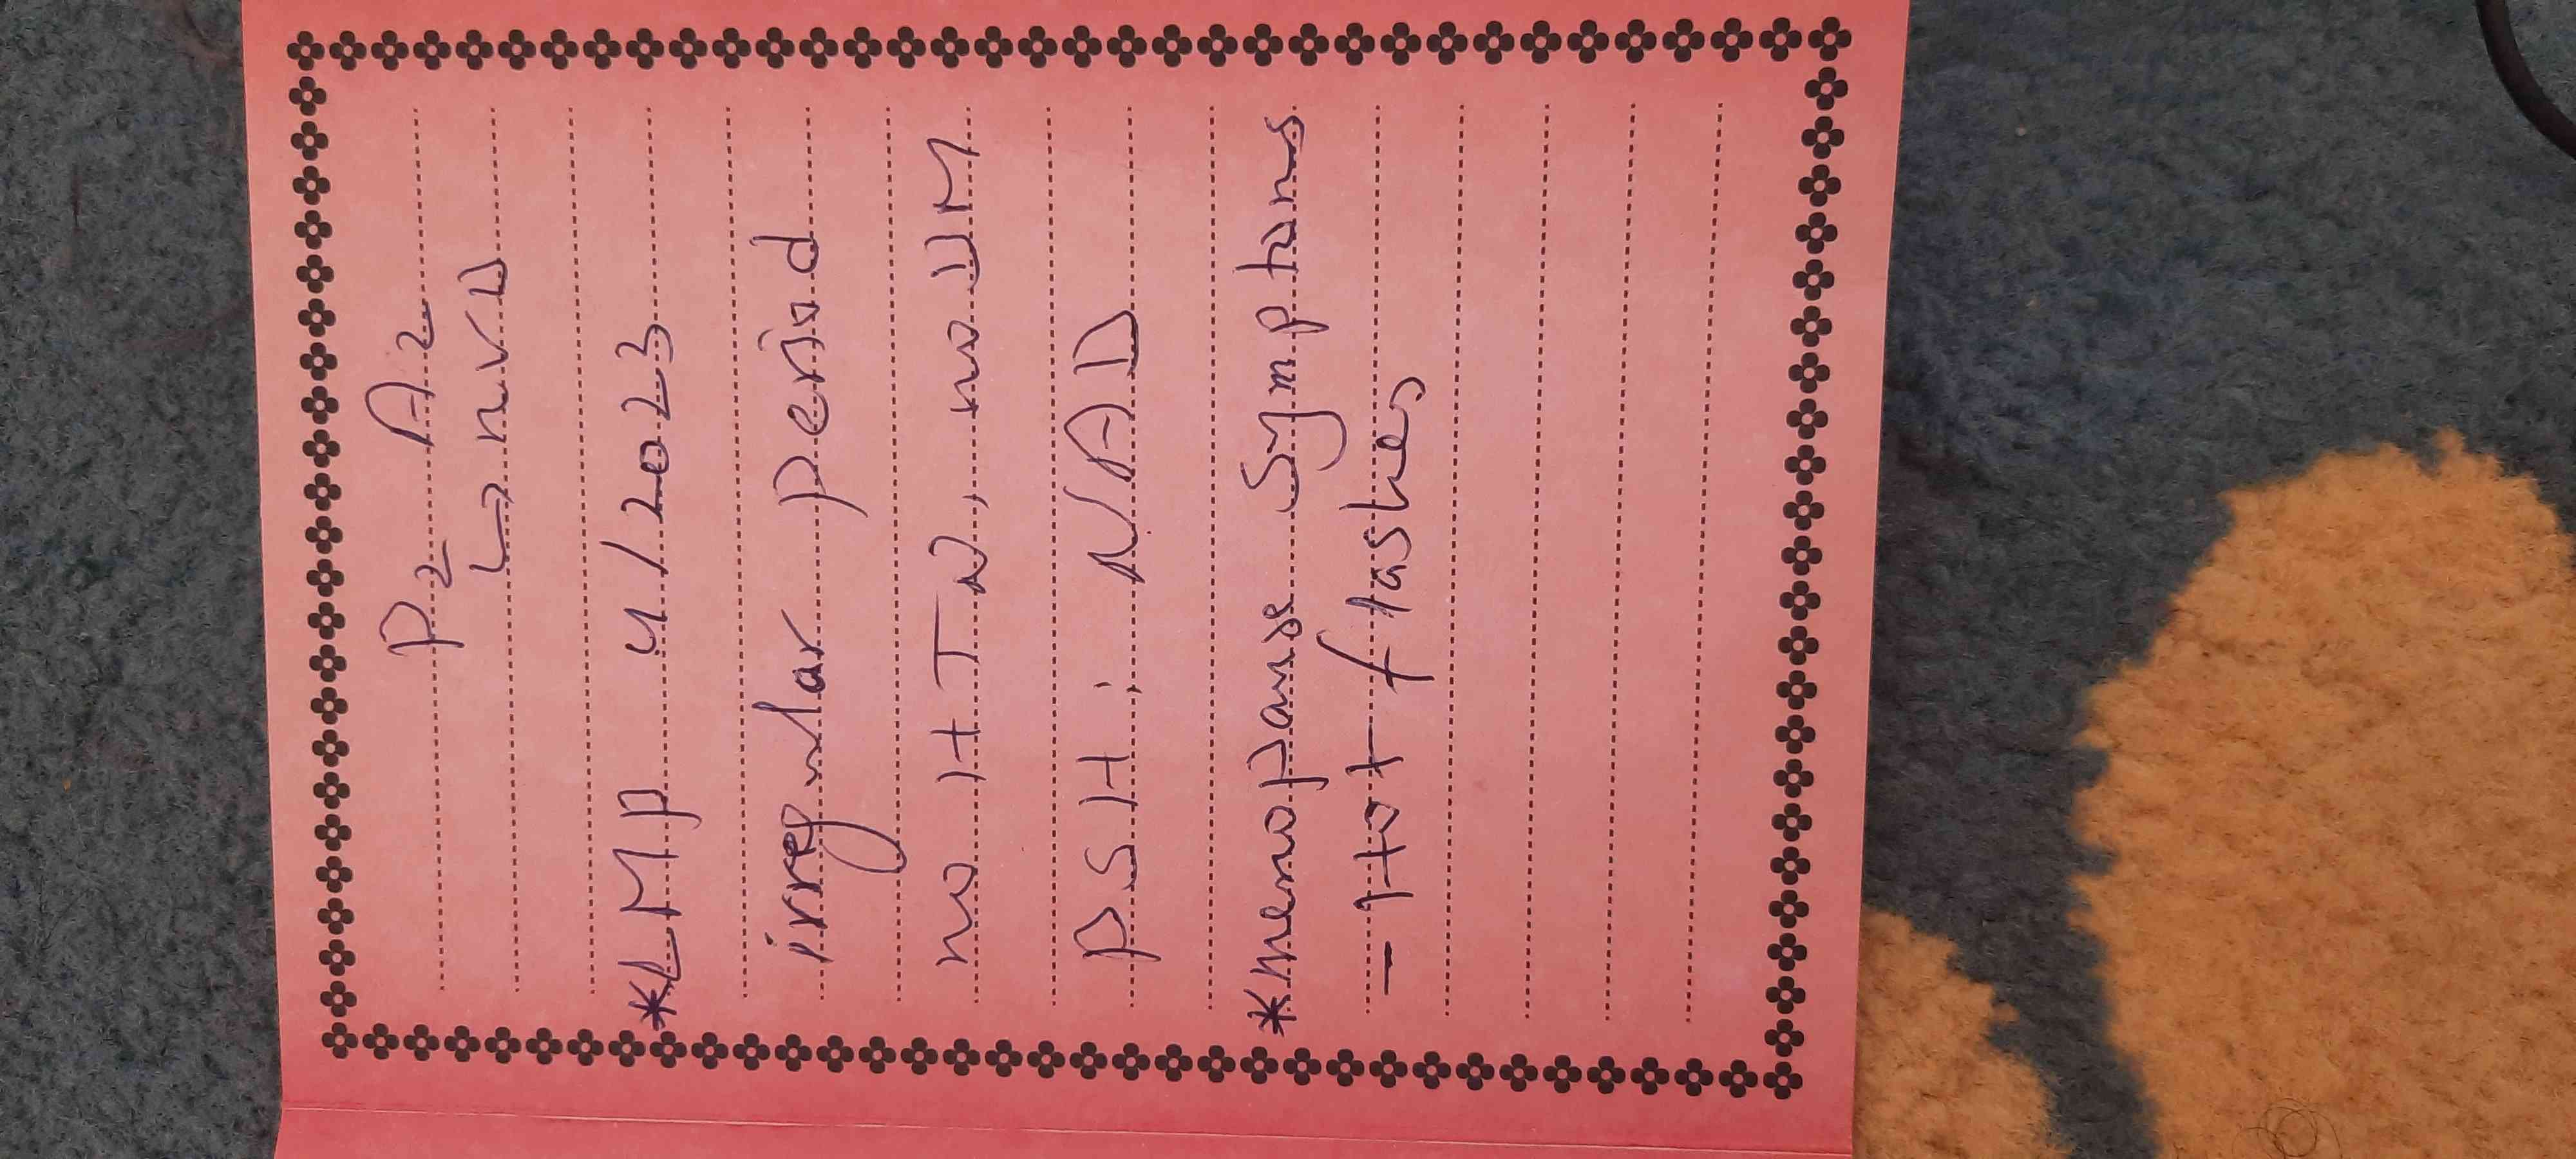 P2 A2
↳ nvD
*LMP 4/2023
irregular period
no HTN, no DM
PSH: NAD
*menopause symptoms
- Hot flashes